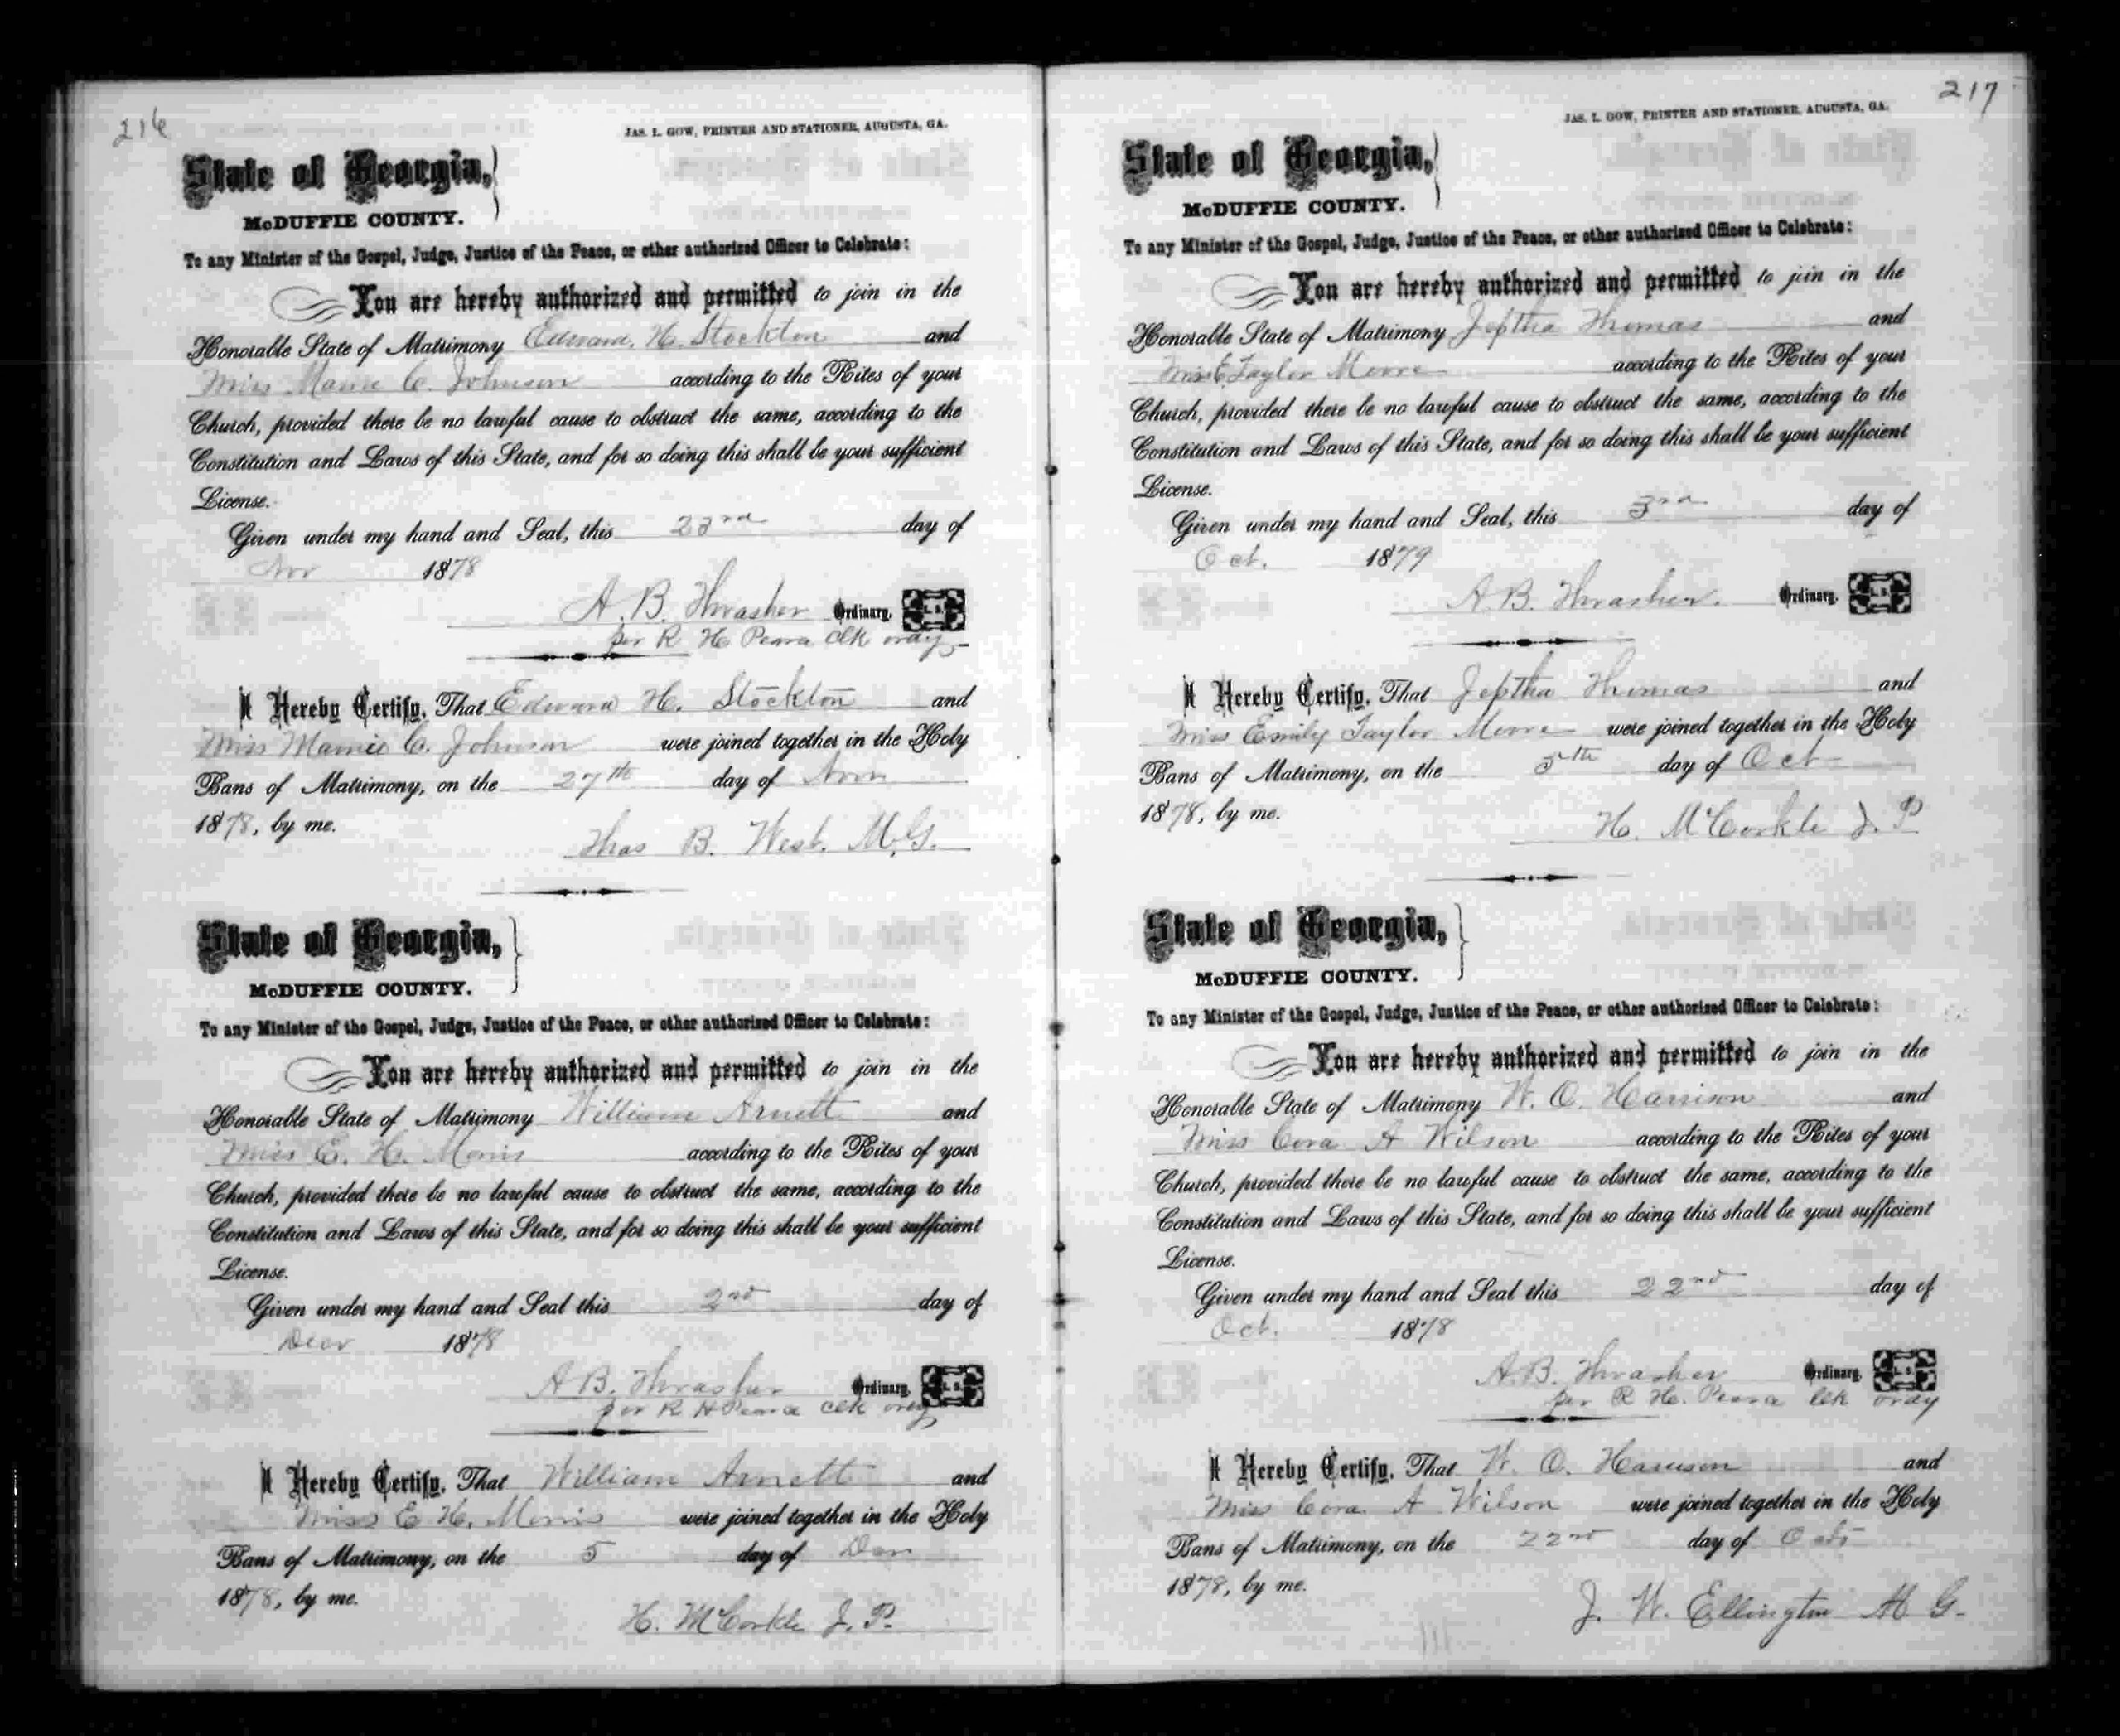 216
JAS. L. GOW, PRINTER AND STATIONER, AUGUSTA, GA.
State of Georgia,
McDUFFIE COUNTY.
To any Minister of the Gospel, Judge, Justice of the Peace, or other authorized Officer to Celebrate:
You are hereby authorized and permitted to join in the
Honorable State of Matrimony Edward. H. Stockton and
Miss Mamie C. Johnson according to the Rites of your
Church, provided there be no lawful cause to obstruct the same, according to the
Constitution and Laws of this State, and for so doing this shall be your sufficient
License.
Given under my hand and Seal, this 23rd day of
Nov 1878
A. B. Thrasher Ordinary, L. S.
per R H Pearre Clk ordy
I Hereby Certify, That Edward H. Stockton and
Miss Mamie C. Johnson were joined together in the Holy
Bans of Matrimony, on the 27th day of Novr
1878, by me.
Thos B. West. M.G.
State of Georgia,
McDUFFIE COUNTY.
To any Minister of the Gospel, Judge, Justice of the Peace, or other authorized Officer to Celebrate:
You are hereby authorized and permitted to join in the
Honorable State of Matrimony William Arnett and
Miss E. H. Morris according to the Rites of your
Church, provided there be no lawful cause to obstruct the same, according to the
Constitution and Laws of this State, and for so doing this shall be your sufficient
License.
Given under my hand and Seal this 2nd day of
Decr 1878
A B. Thrasher Ordinary, L. S.
per R H Pearre Clk ordy
I Hereby Certify, That William Arnett and
Miss E H. Morris were joined together in the Holy
Bans of Matrimony, on the 5 day of Decr
1878, by me.
H. McCorkle J. P.
217
JAS. L. GOW, PRINTER AND STATIONER, AUGUSTA, GA.
State of Georgia,
McDUFFIE COUNTY.
To any Minister of the Gospel, Judge, Justice of the Peace, or other authorized Officer to Celebrate:
You are hereby authorized and permitted to join in the
Honorable State of Matrimony Jeptha Thomas and
Miss E Taylor Moore according to the Rites of your
Church, provided there be no lawful cause to obstruct the same, according to the
Constitution and Laws of this State, and for so doing this shall be your sufficient
License.
Given under my hand and Seal, this 3rd day of
Oct. 1879
A. B. Thrasher. Ordinary, L. S.
I Hereby Certify, That Jeptha Thomas and
Miss Emily Taylor Moore were joined together in the Holy
Bans of Matrimony, on the 5th day of Oct
1878, by me.
H. McCorkle J. P
State of Georgia,
McDUFFIE COUNTY.
To any Minister of the Gospel, Judge, Justice of the Peace, or other authorized Officer to Celebrate:
You are hereby authorized and permitted to join in the
Honorable State of Matrimony W. O. Harrison and
Miss Cora A Wilson according to the Rites of your
Church, provided there be no lawful cause to obstruct the same, according to the
Constitution and Laws of this State, and for so doing this shall be your sufficient
License.
Given under my hand and Seal this 22nd day of
Oct. 1878
A. B. Thrasher Ordinary, L. S.
per R H. Pearre Clk ordy
I Hereby Certify, That W. O. Harrison and
Miss Cora A Wilson were joined together in the Holy
Bans of Matrimony, on the 22nd day of Oct
1878, by me.
J. W. Ellington M G.